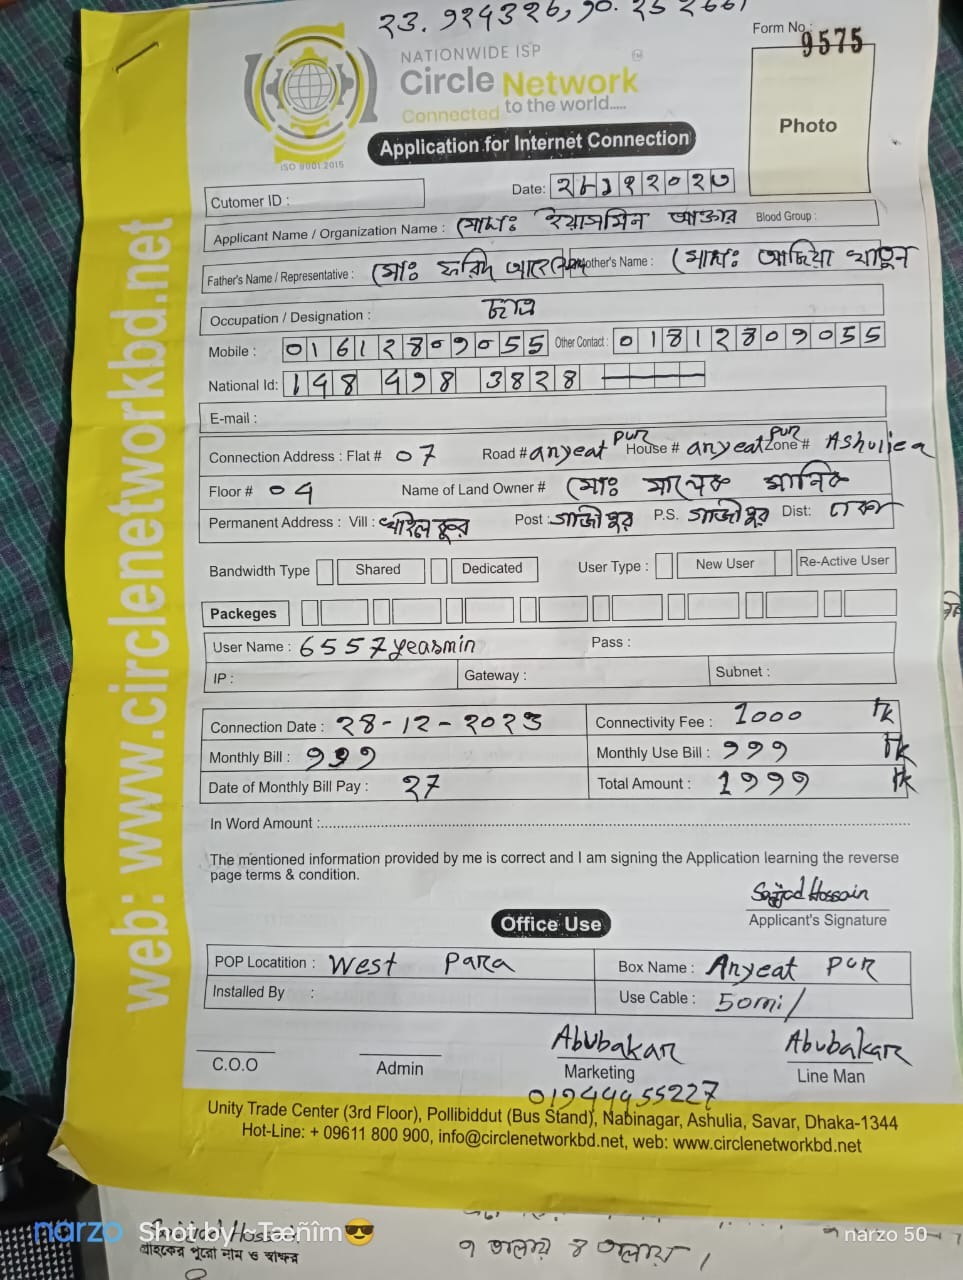 23.924326, 90.
Form No.: 9575
NATIONWIDE ISP
Circle Network
Connected to the world.....
ISO 9001:2015
Photo
Application for Internet Connection
Cutomer ID :
Date:
Applicant Name / Organization Name : মোছাঃ ইয়াসমিন আক্তার Blood Group :
Father's Name / Representative : মোঃ ফরিদ Mother's Name : মোছাঃ খাতুন
Occupation / Designation :
Mobile : 01612809055 Other Contact : 01812809055
National Id: 148 498 3828
E-mail :
Connection Address : Flat # 07 Road # anyeat pur House # anyeat pur Zone # Ashuliea
Floor # 04 Name of Land Owner # মোঃ মালেক মানিক
Permanent Address : Vill : Post : গাজীপুর P.S. গাজীপুর Dist: ঢাকা
Bandwidth Type Shared Dedicated User Type : New User Re-Active User
Packeges
User Name : 6557yeasmin Pass :
IP : Gateway : Subnet :
Connection Date : 28-12-2023 Connectivity Fee : 1000 Tk
Monthly Bill : 999 Monthly Use Bill : 999 Tk
Date of Monthly Bill Pay : 27 Total Amount : 1999 Tk
In Word Amount :
The mentioned information provided by me is correct and I am signing the Application learning the reverse
page terms & condition.
Sajjad Hossain
Applicant's Signature
Office Use
POP Locatition : West Para Box Name : Anyeat PUR
Installed By : Use Cable : 50mi/
Abubakar Abubakar
C.O.O Admin Marketing Line Man
01944955227
Unity Trade Center (3rd Floor), Pollibiddut (Bus Stand), Nabinagar, Ashulia, Savar, Dhaka-1344
Hot-Line: + 09611 800 900, info@circlenetworkbd.net, web: www.circlenetworkbd.net
web: www.circlenetworkbd.net
Sajjad Hossain
গ্রাহকের পুরো নাম ও স্বাক্ষর
narzo Shot by - Tæñîm😎
narzo 50